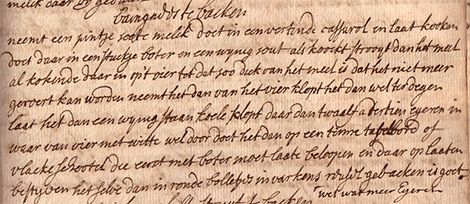 melck daer
baingades te backen
neemt een pintje soete melck doet in een vertinde casserol en laet kooken
doet daer in een stuckje boter en een wijnig sout als koockt strooyt dan het meel
al kokende daer in op't vier tot dat soo dick van het meel is dat het niet meer
geroert kan worden neemt het dan van het vier klopt het dan wel ter degen
laet het dan een wijnig staen koele klopt daer dan twaelf a dertien eyeren in
waer van vier met witte wel door doet het dan op een tenne tafelbord of
vlacke schootel die eerst met boter moet laete beloopen en daer op laeten
bestijven het selve dan in ronde bolletjes in varkens reusel gebacken is goet
wel wat meer Eyeren